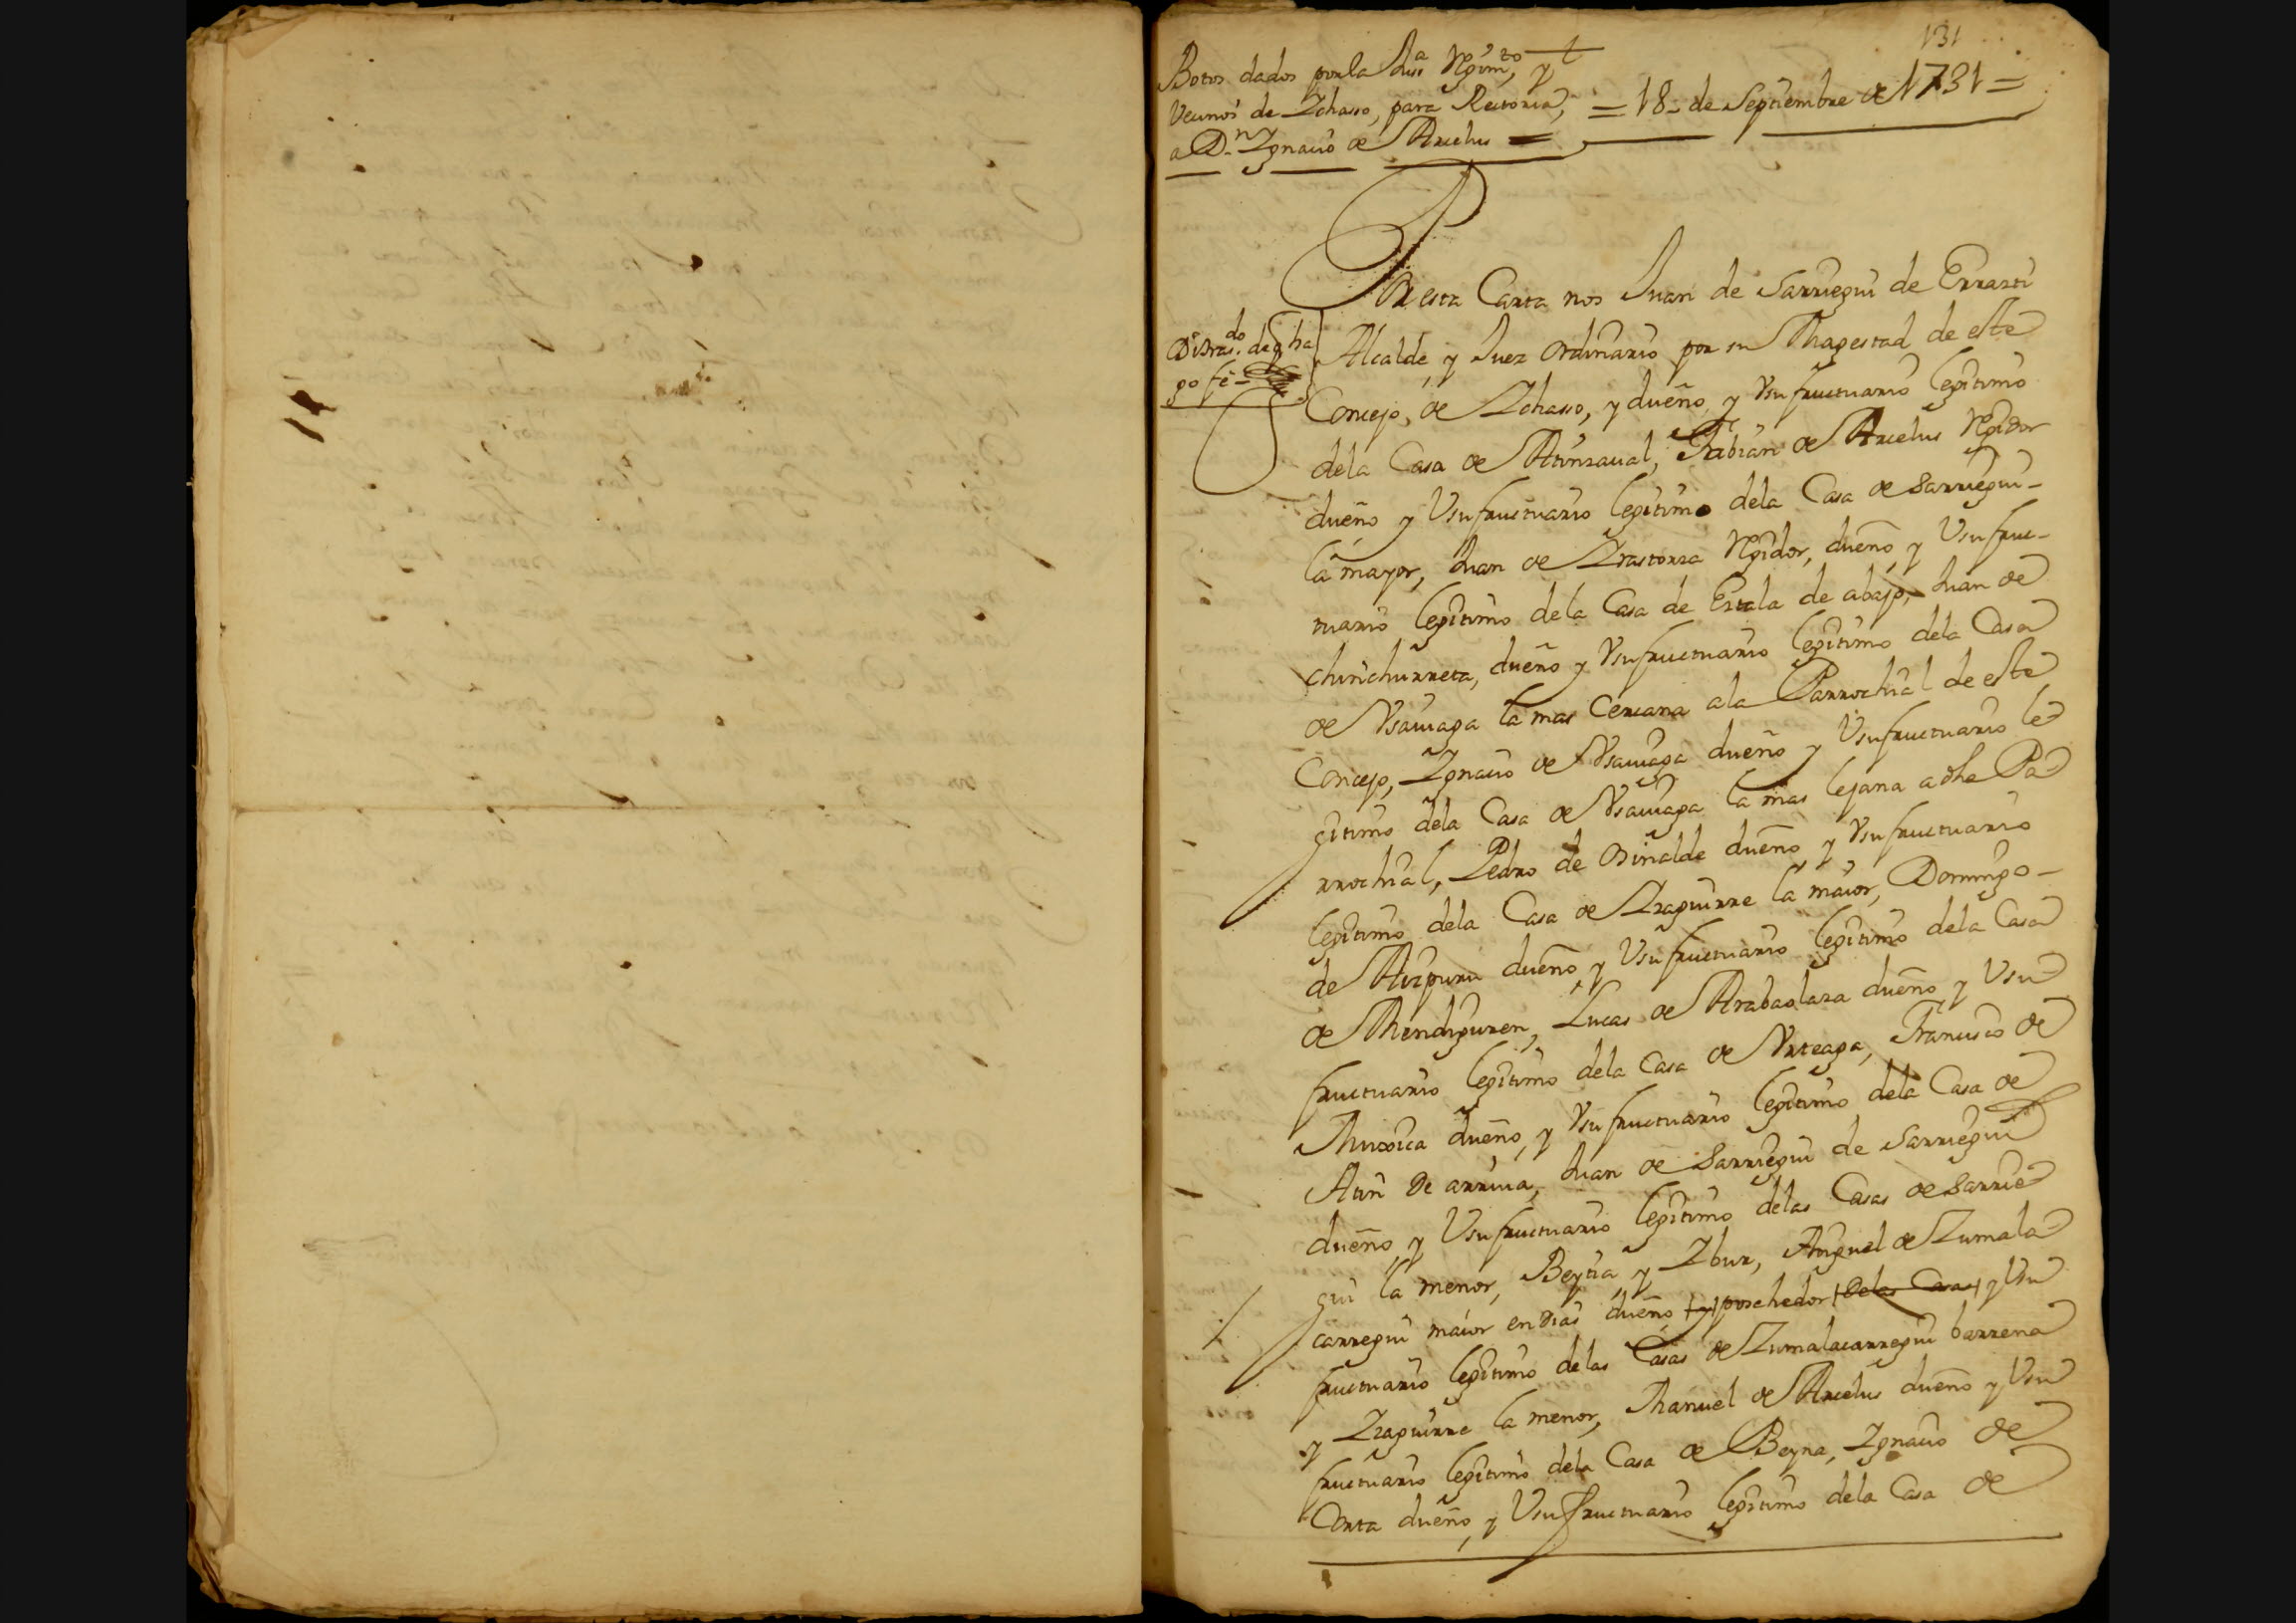 131
Botos dados por la Jusª Rgimto, y
Vecinos de Ichasso, para Rectoria,
a Dn. Ygnacio de Arcelus =
= 18 de Septiembre de 1731 =
Por esta Carta nos Juan de Sarriegui de Errarti
Alcalde, y Juez Ordinario por su Magestad de este
Concejo, de Ichasso, y dueño, y Vsufructuario legitimo
dela Casa de Atinzaual, Fabian de Arcelus Rgidor
dueño y Vsufructuario legitimo dela Casa de Sarriegui
la mayor, Juan de Irastorza Rgidor, dueño, y Vsufruc-
tuario legitimo dela Casa de Ezcala de abajo, Juan de
Churichurreta, dueño y Vsufructuario legitimo dela Casa
de Vsauiaga la mas Cercana ala Parrochial de este
Concejo, Ygnacio de Vsauiaga dueño y Vsufructuario le
gitimo dela Casa de Vsauiaga la mas lejana a dhe Pa
rrochial, Pedro de Osinalde dueño y Vsufructuario
legitimo dela Casa de Izaguirre la maior, Domingo
de Aizpuru dueño, y Vsufructuario legitimo dela Casa
de Mendiguren, Lucas de Arabaolaza dueño y Vsu
fructuario legitimo dela Casa de Vrteaga, Francisco de
Muxica dueño, y Vsufructuario legitimo dela Casa de
Atin de arriua, Juan de Sarriegui de Sarriegui
dueño y Vsufructuario legitimo delas Casas de Sarrie
gui la menor, Beytia y Ibur, Miguel de Zumala
carregui maior en dias dueño y posehedor delas Casas y Vsu
fructuario legitimo delas Casas de Zumalacarregui barrena
y Izaguirre la menor, Manuel de Arcelus dueño y Vsu
fructuario legitimo dela Casa de Beyna, Ygnacio de
Corta dueño, y Vsufructuario legitimo dela Casa de